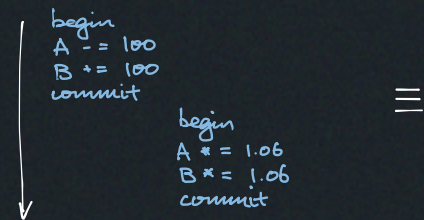 begin
A -= 100
B += 100
commit
≡
begin
A *= 1.06
B *= 1.06
commit